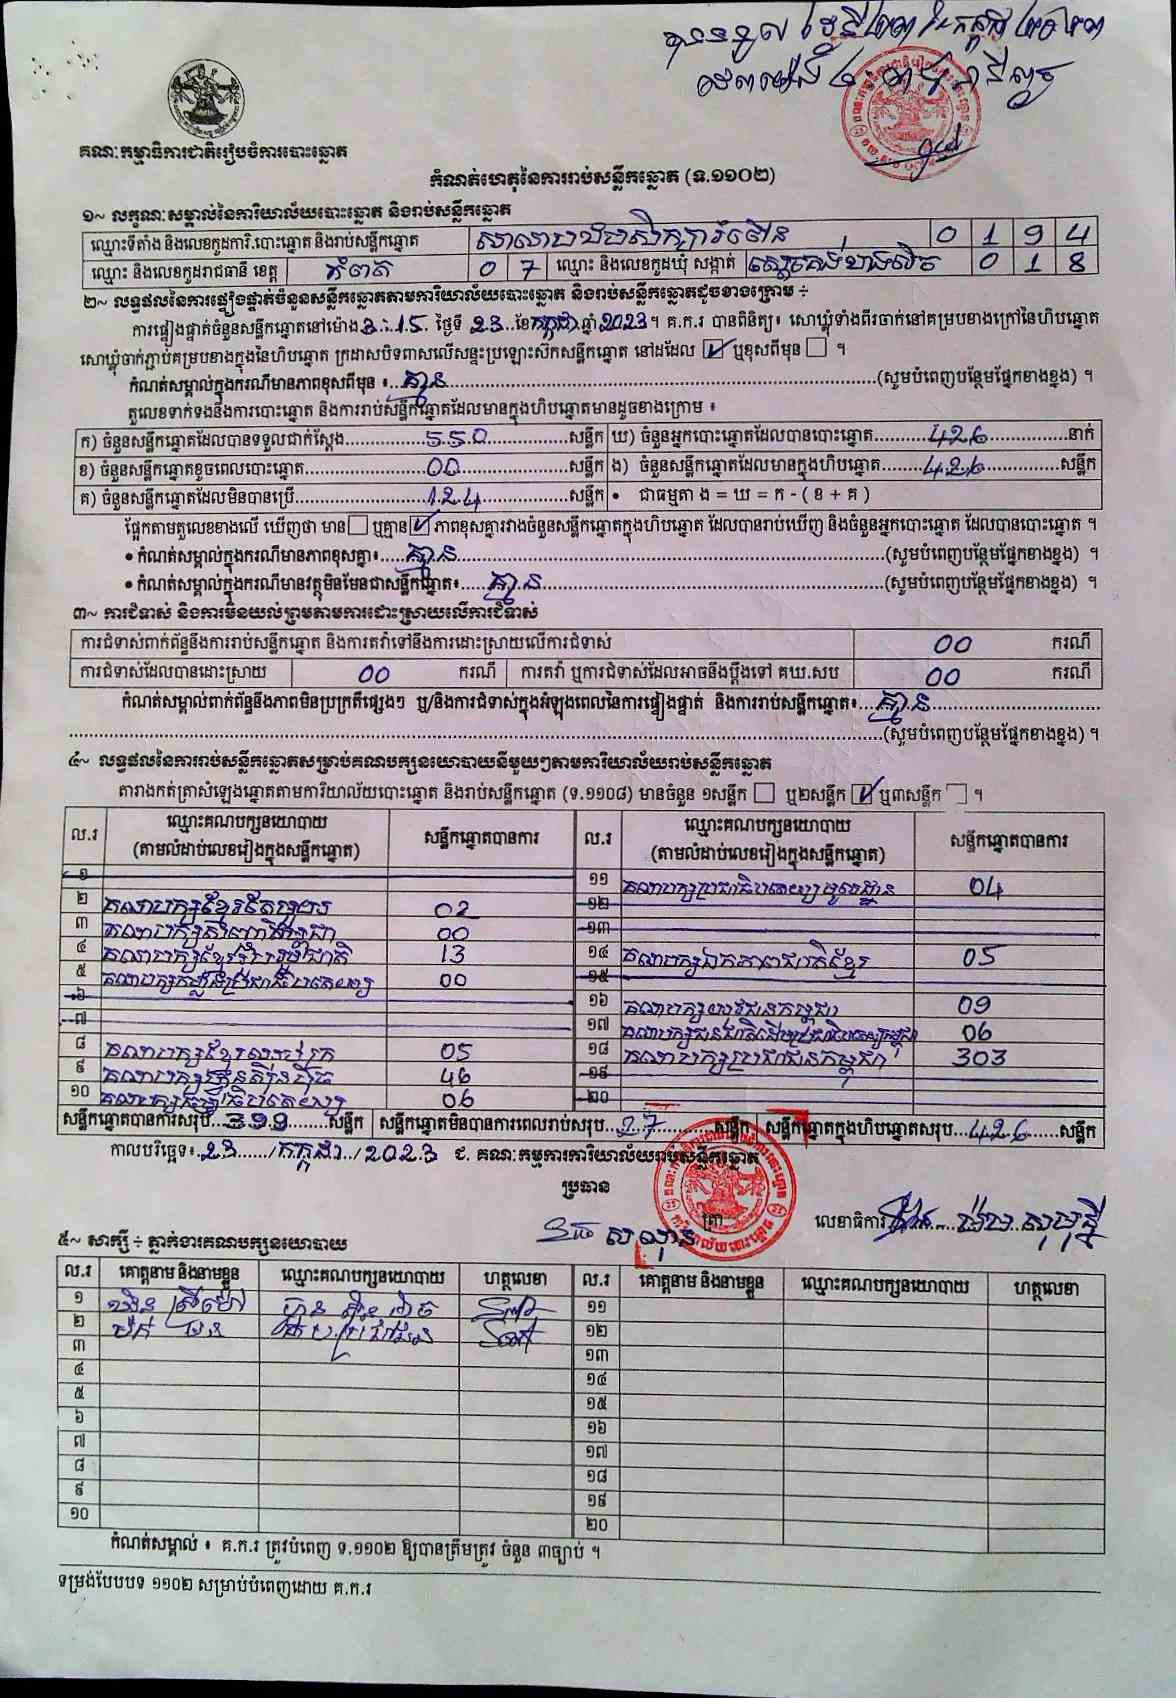 គណៈកម្មាធិការជាតិរៀបចំការបោះឆ្នោត
កំណត់ហេតុនៃការរាប់សន្លឹកឆ្នោត (ទ.១១០២)
១~ លក្ខណៈសម្គាល់នៃការិយាល័យបោះឆ្នោត និងរាប់សន្លឹកឆ្នោត
ឈ្មោះទីតាំង និងលេខកូដការិ.បោះឆ្នោត និងរាប់សន្លឹកឆ្នោត 0 1 9 4
ឈ្មោះ និងលេខកូដរាជធានី ខេត្ត កំពត 0 7 ឈ្មោះ និងលេខកូដឃុំ សង្កាត់ 0 1 8
២~ លទ្ធផលនៃការផ្ទៀងផ្ទាត់ចំនួនសន្លឹកឆ្នោតតាមការិយាល័យបោះឆ្នោត និងរាប់សន្លឹកឆ្នោតដូចខាងក្រោម ÷
ការផ្ទៀងផ្ទាត់ចំនួនសន្លឹកឆ្នោតនៅម៉ោង 3:15 ថ្ងៃទី 23 ខែ កក្កដា ឆ្នាំ 2023 ។ គ.ក.រ បានពិនិត្យ៖ សោឃ្លុំទាំងពីរចាក់នៅគម្របខាងក្រៅនៃហិបឆ្នោត
សោឃ្លុំចាក់ភ្ជាប់គម្របខាងក្នុងនៃហិបឆ្នោត ក្រដាសបិទពាសលើសន្ទះប្រឡោះស៊កសន្លឹកឆ្នោត នៅដដែល ☑ ឬខុសពីមុន ☐ ។
កំណត់សម្គាល់ក្នុងករណីមានភាពខុសពីមុន ៖ គ្មាន (សូមបំពេញបន្ថែមផ្នែកខាងខ្នង) ។
តួលេខទាក់ទងនឹងការបោះឆ្នោត និងការរាប់សន្លឹកឆ្នោតដែលមានក្នុងហិបឆ្នោតមានដូចខាងក្រោម ៖
ក) ចំនួនសន្លឹកឆ្នោតដែលបានទទួលជាក់ស្តែង 550 សន្លឹក ឃ) ចំនួនអ្នកបោះឆ្នោតដែលបានបោះឆ្នោត 426 នាក់
ខ) ចំនួនសន្លឹកឆ្នោតខូចពេលបោះឆ្នោត 00 សន្លឹក ង) ចំនួនសន្លឹកឆ្នោតដែលមានក្នុងហិបឆ្នោត 426 សន្លឹក
គ) ចំនួនសន្លឹកឆ្នោតដែលមិនបានប្រើ 124 សន្លឹក • ជាធម្មតា ង = ឃ = ក - ( ខ + គ )
ផ្អែកតាមតួលេខខាងលើ ឃើញថា មាន ☐ ឬគ្មាន ☑ ភាពខុសគ្នារវាងចំនួនសន្លឹកឆ្នោតក្នុងហិបឆ្នោត ដែលបានរាប់ឃើញ និងចំនួនអ្នកបោះឆ្នោត ដែលបានបោះឆ្នោត ។
• កំណត់សម្គាល់ក្នុងករណីមានភាពខុសគ្នា៖ គ្មាន (សូមបំពេញបន្ថែមផ្នែកខាងខ្នង) ។
• កំណត់សម្គាល់ក្នុងករណីមានវត្ថុមិនមែនជាសន្លឹកឆ្នោត៖ គ្មាន (សូមបំពេញបន្ថែមផ្នែកខាងខ្នង) ។
៣~ ការជំទាស់ និងការមិនយល់ព្រមតាមការដោះស្រាយលើការជំទាស់
ការជំទាស់ពាក់ព័ន្ធនឹងការរាប់សន្លឹកឆ្នោត និងការតវ៉ាទៅនឹងការដោះស្រាយលើការជំទាស់ 00 ករណី
ការជំទាស់ដែលបានដោះស្រាយ 00 ករណី ការតវ៉ា ឬការជំទាស់ដែលអាចនឹងប្តឹងទៅ គឃ.សប 00 ករណី
កំណត់សម្គាល់ពាក់ព័ន្ធនឹងភាពមិនប្រក្រតីផ្សេងៗ ឬ/និងការជំទាស់ក្នុងអំឡុងពេលនៃការផ្ទៀងផ្ទាត់ និងការរាប់សន្លឹកឆ្នោត៖ គ្មាន
(សូមបំពេញបន្ថែមផ្នែកខាងខ្នង) ។
៤~ លទ្ធផលនៃការរាប់សន្លឹកឆ្នោតសម្រាប់គណបក្សនយោបាយនីមួយៗតាមការិយាល័យរាប់សន្លឹកឆ្នោត
តារាងកត់ត្រាសំឡេងឆ្នោតតាមការិយាល័យបោះឆ្នោត និងរាប់សន្លឹកឆ្នោត (ទ.១១០៨) មានចំនួន ១សន្លឹក ☐ ឬ២សន្លឹក ☑ ឬ៣សន្លឹក ☐ ។
ល.រ ឈ្មោះគណបក្សនយោបាយ (តាមលំដាប់លេខរៀងក្នុងសន្លឹកឆ្នោត) សន្លឹកឆ្នោតបានការ ល.រ ឈ្មោះគណបក្សនយោបាយ (តាមលំដាប់លេខរៀងក្នុងសន្លឹកឆ្នោត) សន្លឹកឆ្នោតបានការ
១ ១១ គណបក្សប្រជាធិបតេយ្យមូលដ្ឋាន 04
២ គណបក្សខ្មែរតែមួយ 02 ១២
៣ 00 ១៣
៤ គណបក្សខ្មែររួបរួមជាតិ 13 ១៤ គណបក្សឯកភាពជាតិខ្មែរ 05
៥ គណបក្សកម្លាំងប្រជាធិបតេយ្យ 00 ១៥
៦ ១៦ គណបក្សយុវជនកម្ពុជា 09
៧ ១៧ គណបក្សជនជាតិដើមប្រជាធិបតេយ្យកម្ពុជា 06
៨ គណបក្សខ្មែរឈប់ក្រ 05 ១៨ គណបក្សប្រជាជនកម្ពុជា 303
៩ គណបក្សហ៊្វុនស៊ិនប៉ិច 46 ១៩
១០ គណបក្សធម្មាធិបតេយ្យ 06 ២០
សន្លឹកឆ្នោតបានការសរុប 399 សន្លឹក សន្លឹកឆ្នោតមិនបានការពេលរាប់សរុប 27 សន្លឹក សន្លឹកឆ្នោតក្នុងហិបឆ្នោតសរុប 426 សន្លឹក
កាលបរិច្ឆេទ៖ 23 / កក្កដា / 2023 ជ. គណៈកម្មការការិយាល័យរាប់សន្លឹកឆ្នោត
ប្រធាន
ត្រា លេខាធិការ
៥~ សាក្សី ÷ ភ្នាក់ងារគណបក្សនយោបាយ
ល.រ គោត្តនាម និងនាមខ្លួន ឈ្មោះគណបក្សនយោបាយ ហត្ថលេខា ល.រ គោត្តនាម និងនាមខ្លួន ឈ្មោះគណបក្សនយោបាយ ហត្ថលេខា
១ ១១
២ ១២
៣ ១៣
៤ ១៤
៥ ១៥
៦ ១៦
៧ ១៧
៨ ១៨
៩ ១៩
១០ ២០
កំណត់សម្គាល់ ៖ គ.ក.រ ត្រូវបំពេញ ទ.១១០២ ឱ្យបានត្រឹមត្រូវ ចំនួន ៣ច្បាប់ ។
ទម្រង់បែបបទ ១១០២ សម្រាប់បំពេញដោយ គ.ក.រ